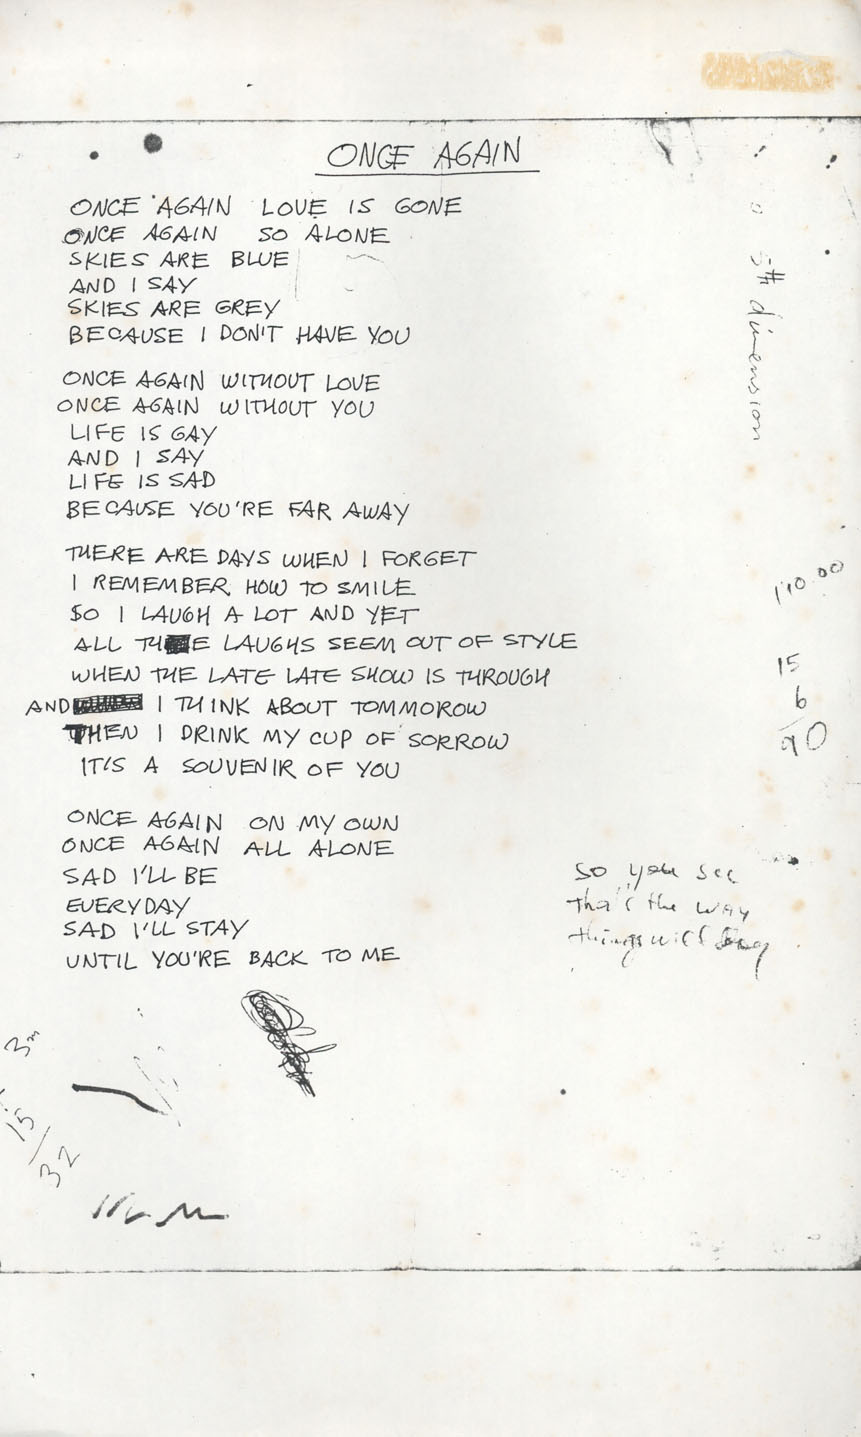 ONCE AGAIN
ONCE AGAIN LOVE IS GONE
ONCE AGAIN SO ALONE
SKIES ARE BLUE
AND I SAY
SKIES ARE GREY
BECAUSE I DON'T HAVE YOU
ONCE AGAIN WITHOUT LOVE
ONCE AGAIN WITHOUT YOU
LIFE IS GAY
AND I SAY
LIFE IS SAD
BECAUSE YOU'RE FAR AWAY
THERE ARE DAYS WHEN I FORGET
I REMEMBER HOW TO SMILE
SO I LAUGH A LOT AND YET
ALL THE LAUGHS SEEM OUT OF STYLE
WHEN THE LATE LATE SHOW IS THROUGH
AND I THINK ABOUT TOMMOROW
THEN I DRINK MY CUP OF SORROW
IT'S A SOUVENIR OF YOU
ONCE AGAIN ON MY OWN
ONCE AGAIN ALL ALONE
SAD I'LL BE
EVERYDAY
SAD I'LL STAY
UNTIL YOU'RE BACK TO ME
5th dimension
15
6
90
so you see
that's the way
things will
15/32